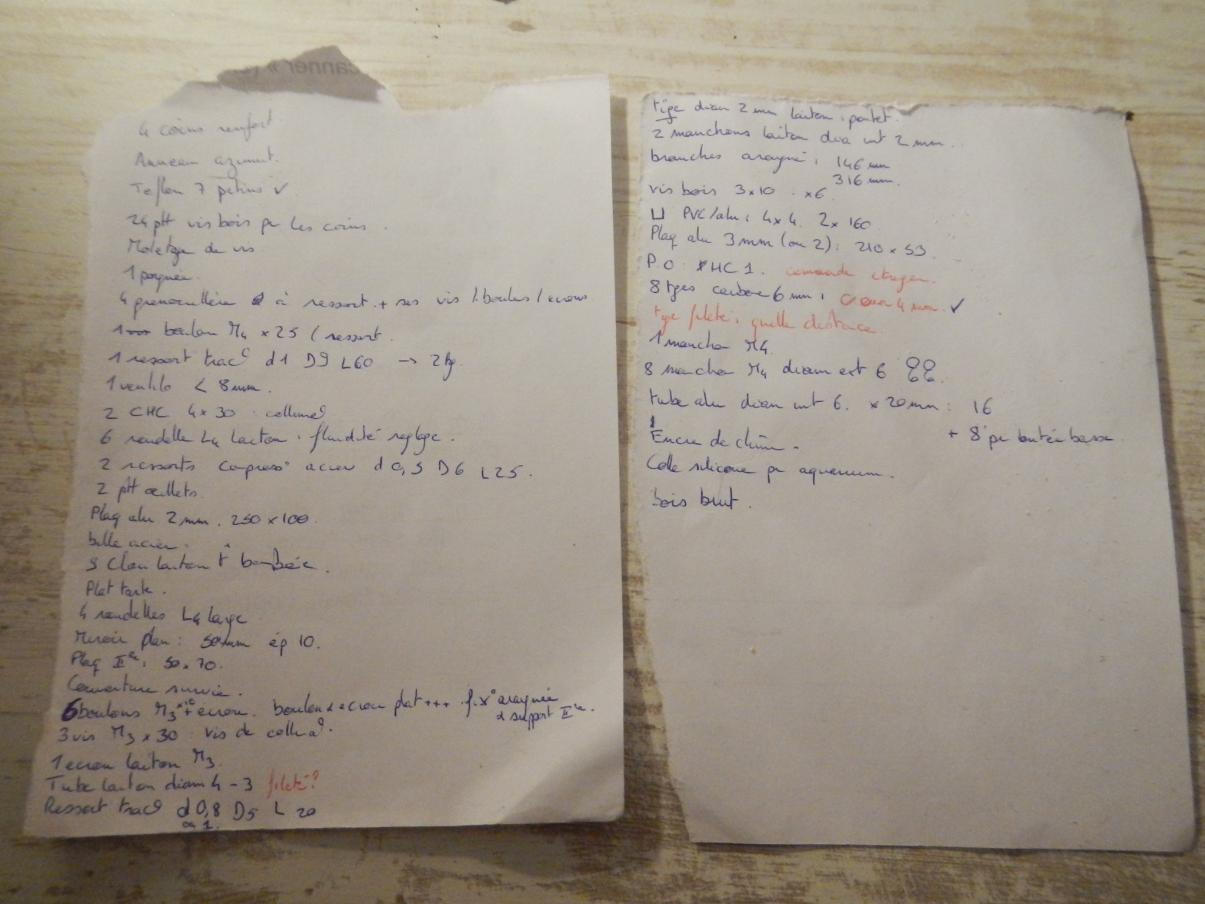 4 coins renfort
Anneau azimut.
Teflon 7 patins ✓
24 ptt vis bois pr les coins.
Moletage de vis
1 poignée
4 grenouillère à ressort + ses vis / boulons / écrous
1 boulon M4 x 25 / ressort.
1 ressort trac° d1 D9 L60 → 2kg.
1 ventilo < 8mm.
2 CHC 4x30 : collima°
6 rondelle L4 laiton : fluidité réglage.
2 ressorts compress° acier d0,5 D6 L25.
2 ptt oeillets.
Plaq alu 2mm. 250 x 100.
bille acier.
3 Clou laiton tê bombée.
Plat tarte.
4 rondelles L4 large
Miroir plan : 50mm ép 10.
Plaq IIre : 50x70.
Couverture survie.
6 boulons M3 x10 + écrou. boulon & écrou plat +++ fix° araignée
& support IIre.
3 vis M3 x 30 : vis de colli°.
1 écrou laiton M3.
Tube laiton diam 4 - 3 fileté ?
Ressort trac° d0,8 D5 L 20
ou 1.
tige diam 2 mm laiton :
2 manchons laiton dia int 2 mm.
branches araignée : 146 mm
316 mm.
vis bois 3x10 x6
⊔ PVC/alu : 4x4. 2x160
Plaq alu 3mm (ou 2) : 210 x 53.
P.O. HC 1.
8 tiges carbone 6 mm : 4 mm. ✓
tige filetée : quelle distance
1 manchon M4.
8 manchon M4 diam ext 6
tube alu diam int 6. x 20mm : 16
+ 8 pr butée basse
Encre de chine.
Colle silicone pr aquarium.
bois brut.